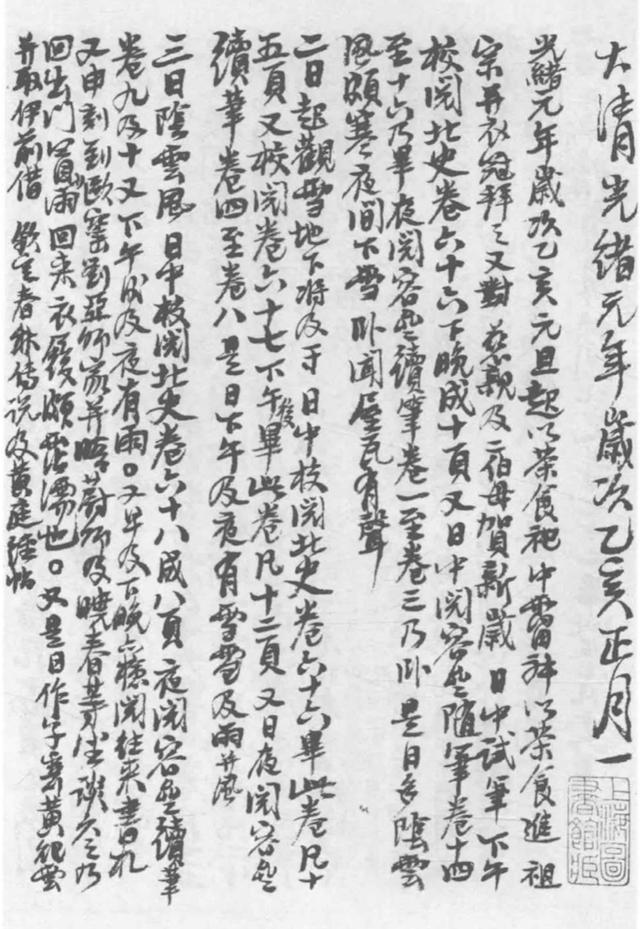 大清光緒元年歲次乙亥正月一
光緒元年歲次乙亥元旦起以茶食祀中霤神以茶食進 祖
宗并衣冠拜之又對 慈親及二伯母賀新歲 日中試筆 下午
校閱北史卷六十六下晚成十頁又日中閱容齋隨筆卷十四
至十六乃畢夜閱容齋續筆卷一至卷三乃卧 是日多陰雲
風頗寒夜間下雪 卧聞屋瓦有聲
二日起觀雪地下將及寸 日中校閱北史卷六十六畢此卷凡十
五頁又校閱卷六十七下午後畢此卷凡十二頁 又日夜閱容齋
續筆卷四至卷八 是日下午及夜有雪雪及雨并風
三日陰雲風 日中校閱北史卷六十八成八頁 夜閱容齋續筆
卷九及十又下午及夜有雨。又早及下晚檢閱往來書札
又申刻到歐窯劉亞師家并晤蔚師及曉春等坐談久之乃
回出門買雨回來衣履頗霑濡也。又是日作字寄黃
并取伊前借 欽定春秋傳說及黃庭經帖
上海圖書館藏